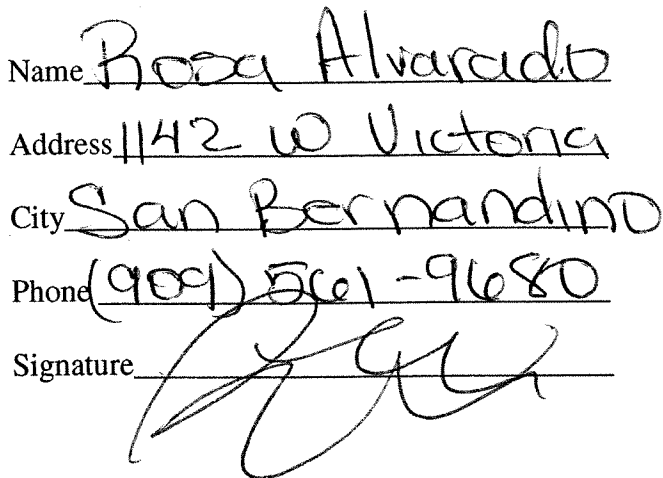 Name Rosa Alvarado
Address 1142 W Victoria
City San Bernandino
Phone (909) 561-9680
Signature